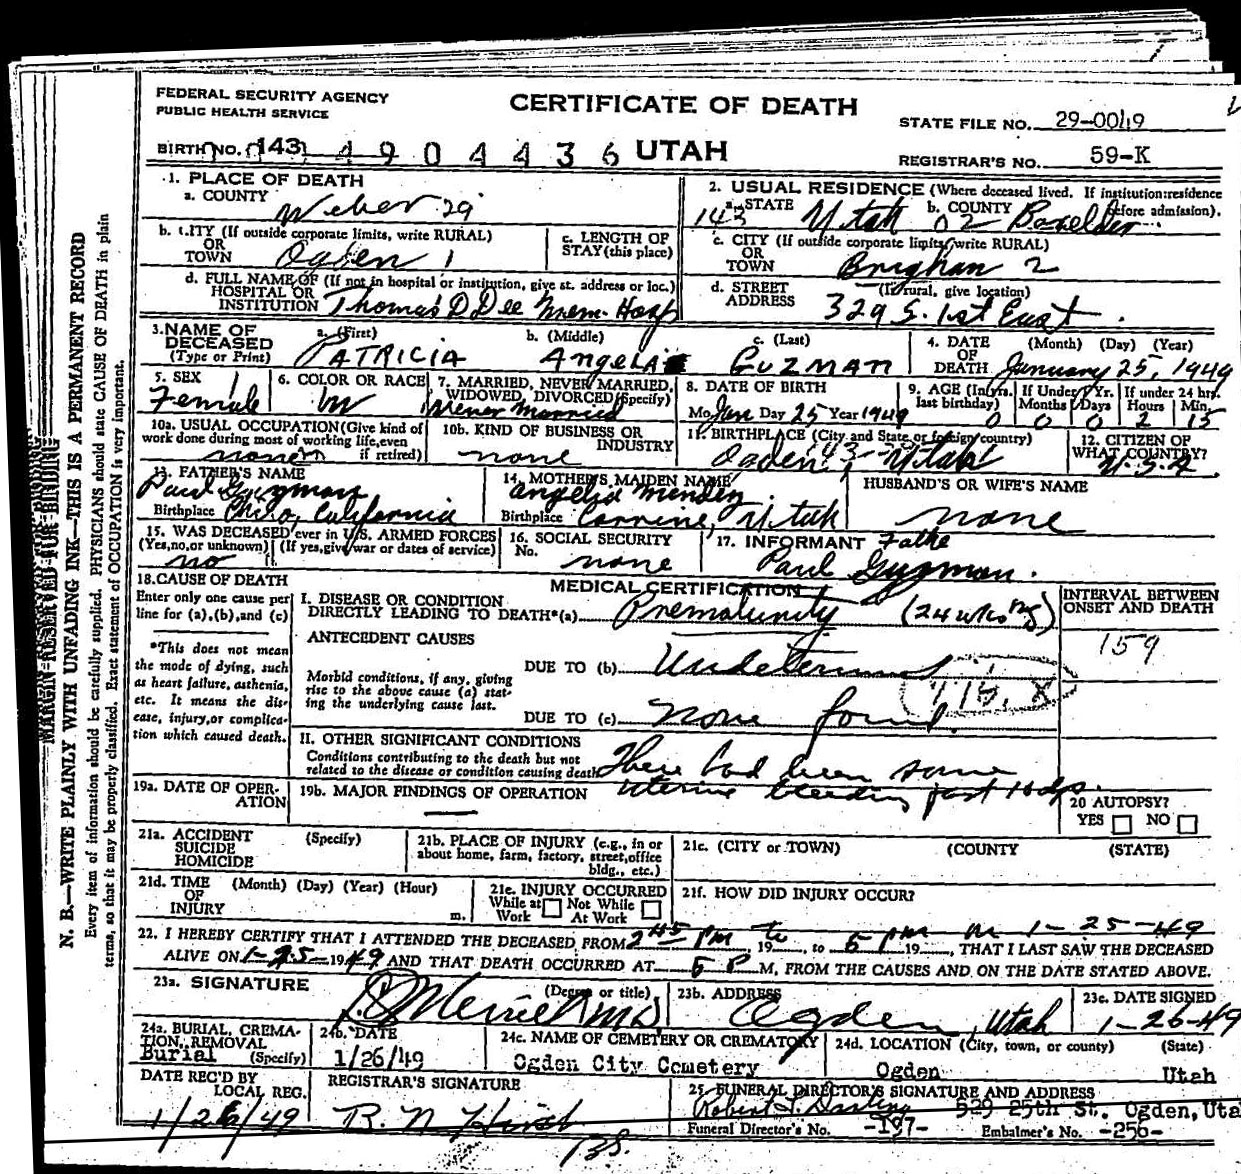 FEDERAL SECURITY AGENCY
PUBLIC HEALTH SERVICE
CERTIFICATE OF DEATH
STATE FILE NO. 29-0049
BIRTH NO. 143 4904436 UTAH
REGISTRAR'S NO. 59-K
1. PLACE OF DEATH
a. COUNTY Weber 29
2. USUAL RESIDENCE (Where deceased lived. If institution: residence before admission).
a. STATE 143 Utah b. COUNTY 02 Boxelder
b. CITY (If outside corporate limits, write RURAL) OR TOWN Ogden 1
c. LENGTH OF STAY (this place)
c. CITY (If outside corporate limits, write RURAL) OR TOWN Brigham 2
d. FULL NAME OF (If not in hospital or institution, give st. address or loc.) HOSPITAL OR INSTITUTION Thomas D Dee Mem. Hosp
d. STREET ADDRESS (If rural, give location) 329 S. 1st East.
3. NAME OF DECEASED (Type or Print)
a. (First) PATRICIA
b. (Middle) Angelia
c. (Last) GUZMAN
4. DATE OF DEATH (Month) (Day) (Year) January 25, 1949
5. SEX Female
6. COLOR OR RACE W
7. MARRIED, NEVER MARRIED, WIDOWED, DIVORCED (Specify) Never Married
8. DATE OF BIRTH Mo. Jan Day 25 Year 1949
9. AGE (In yrs. last birthday) 0
If Under 1 Yr. Months 0 Days 0
If under 24 hrs. Hours 2 Min. 15
10a. USUAL OCCUPATION (Give kind of work done during most of working life, even if retired) none
10b. KIND OF BUSINESS OR INDUSTRY none
11. BIRTHPLACE (City and State or foreign country) Ogden, Utah
12. CITIZEN OF WHAT COUNTRY? U.S.A
13. FATHER'S NAME Paul Guzman
Birthplace Chino, California
14. MOTHER'S MAIDEN NAME Angelia Mendez
Birthplace Corrine, Utah
HUSBAND'S OR WIFE'S NAME none
15. WAS DECEASED ever in U.S. ARMED FORCES (Yes, no, or unknown) (If yes, give war or dates of service) no
16. SOCIAL SECURITY No. none
17. INFORMANT Father
Paul Guzman.
18. CAUSE OF DEATH
Enter only one cause per line for (a), (b), and (c)
*This does not mean the mode of dying, such as heart failure, asthenia, etc. It means the disease, injury, or complication which caused death.
MEDICAL CERTIFICATION
I. DISEASE OR CONDITION DIRECTLY LEADING TO DEATH*(a) Prematurity (24 wks
INTERVAL BETWEEN ONSET AND DEATH
159
ANTECEDENT CAUSES
Morbid conditions, if any, giving rise to the above cause (a) stating the underlying cause last.
DUE TO (b) Undetermined
DUE TO (c) None found
II. OTHER SIGNIFICANT CONDITIONS
Conditions contributing to the death but not related to the disease or condition causing death There had been some
uterine bleeding past 10 dys.
19a. DATE OF OPERATION
19b. MAJOR FINDINGS OF OPERATION —
20 AUTOPSY? YES NO
21a. ACCIDENT SUICIDE HOMICIDE (Specify)
21b. PLACE OF INJURY (e.g., in or about home, farm, factory, street, office bldg., etc.)
21c. (CITY or TOWN) (COUNTY) (STATE)
21d. TIME OF INJURY (Month) (Day) (Year) (Hour) m.
21e. INJURY OCCURRED While at Work Not While At Work
21f. HOW DID INJURY OCCUR?
22. I HEREBY CERTIFY THAT I ATTENDED THE DECEASED, FROM 2 45 PM, 19 to, to 5 pm 19, on 1-25-49 THAT I LAST SAW THE DECEASED
ALIVE ON 1-25-1949 AND THAT DEATH OCCURRED AT 5 P M, FROM THE CAUSES AND ON THE DATE STATED ABOVE.
23a. SIGNATURE (Degree or title) Merrill MD
23b. ADDRESS Ogden, Utah
23c. DATE SIGNED 1-26-49
24a. BURIAL, CREMATION, REMOVAL (Specify) Burial
24b. DATE 1/26/49
24c. NAME OF CEMETERY OR CREMATORY Ogden City Cemetery
24d. LOCATION (City, town, or county) (State) Ogden Utah
DATE REC'D BY LOCAL REG. 1/26/49
REGISTRAR'S SIGNATURE R. N. Hirst
25. FUNERAL DIRECTOR'S SIGNATURE AND ADDRESS
Robert L. Darling 529 25th St. Ogden, Uta
Funeral Director's No. -197- Embalmer's No. -256-
MARGIN RESERVED FOR BINDING
N. B.—WRITE PLAINLY WITH UNFADING INK—THIS IS A PERMANENT RECORD
Every item of information should be carefully supplied. PHYSICIANS should state CAUSE OF DEATH in plain
terms, so that it may be properly classified. Exact statement of OCCUPATION is very important.